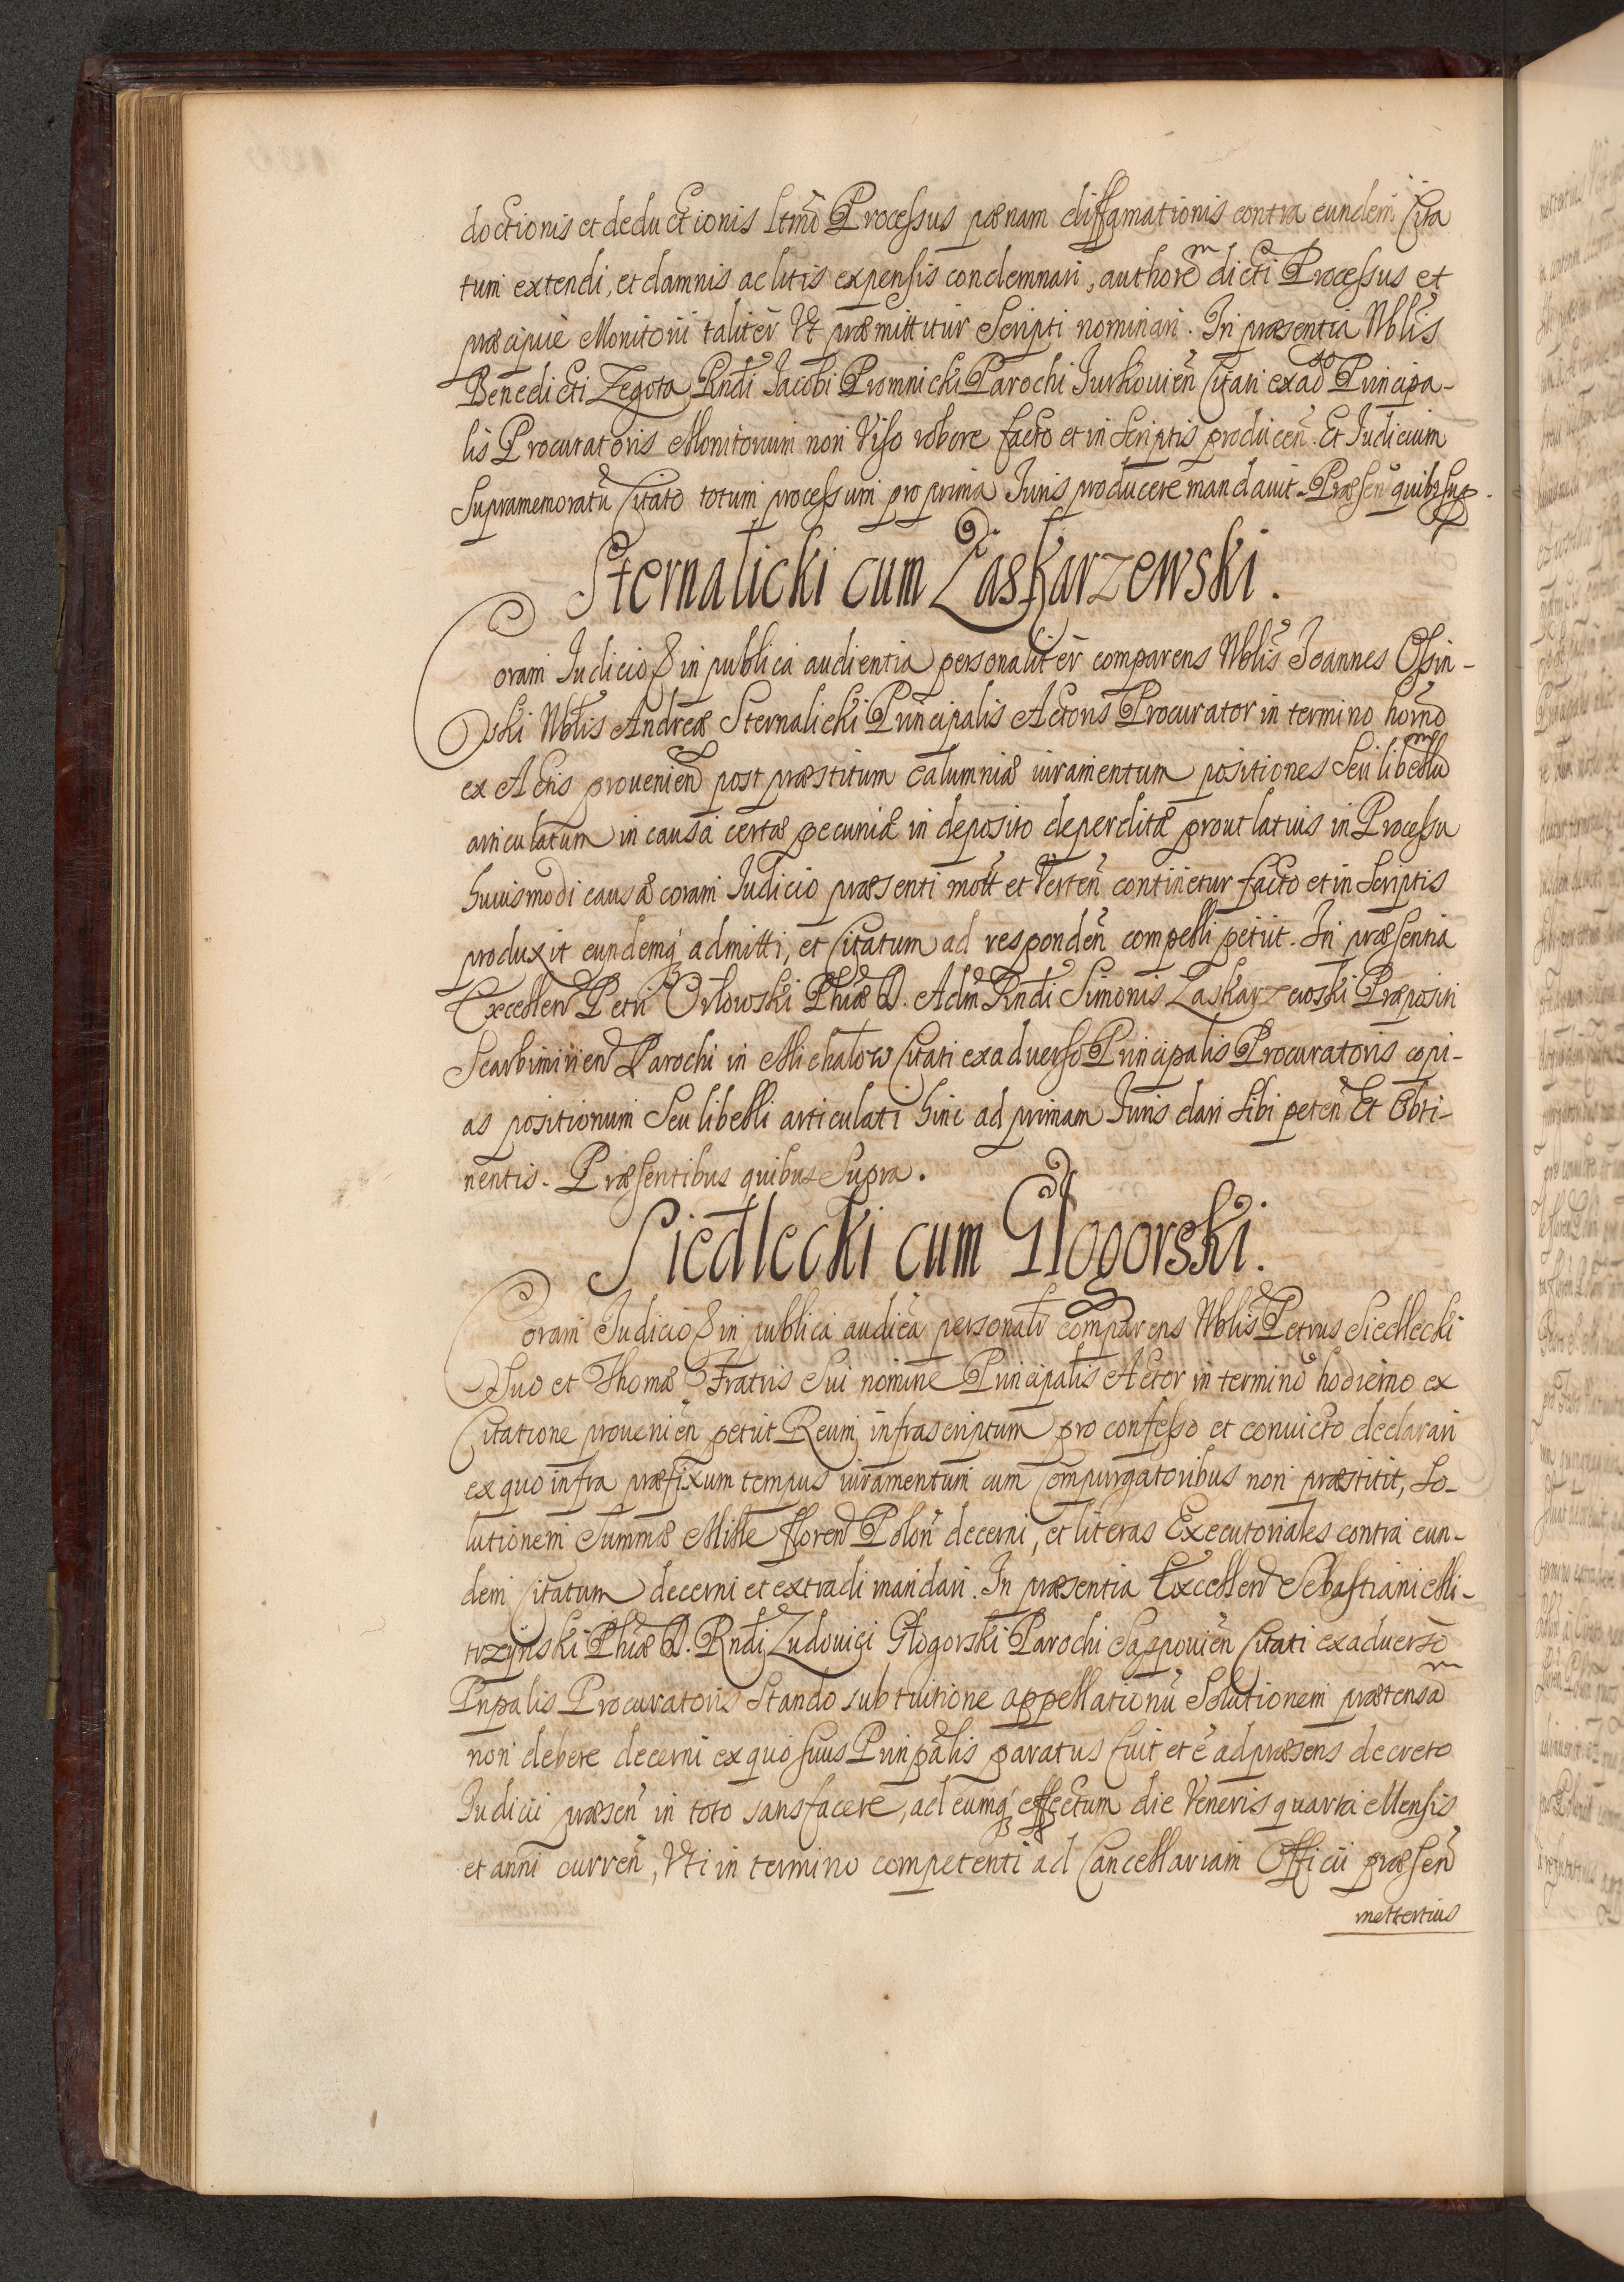 doctionis et deductionis ltmo Processus pœnam diffamationis contra eundem Cita
tum extendi, et damnis ac litis expensis condemnari, authorem dicti Processus et
præcipue Monitorii taliter Vt præmittitur Scripti nominari. In præsentia Nblis
Benedicti Zegota Rndi Jacobi Promnicki Parochi Jurkouien Citati ex adso Principa-
lis Procuratoris Monitorium non Viso robore facto et in Scriptis producen. Et Judicium
Supramemoratu Citato totum processum pro prima Juris producere mandauit. Præsen quibs sup
Sternalicki cum Zaskarzewski.
Coram Judicio & in publica audientia personaliter comparens Nblis Joannes Ossin-
ski Nblis Andreæ Sternalicki Principalis Actoris Procurator in termino horno
ex Actis prouenien post præstitum calumniæ iuramentum positiones Seu libellum
articulatum in causa certæ pecuniæ in deposito deperditæ prout latius in Processu
huiusmodi causæ coram Judicio præsenti mott et Verten continetur facto et in Scriptis
produxit eundemq admitti, et Citatum ad responden compelli petiit. In præsentia
Excellen Petri Orlowski Phiæ D. Adm Rndi Simonis Zaskarzewski Præpositi
Scarbimirien Parochi in Michałow Citati ex aduerso Principalis Procuratoris copi-
as positionum Seu libelli articulati hinc ad primam Juris dari Sibi peten Et Obti-
nentis. Præsentibus quibus Supra.
Siedlecki cum Głogorski.
Coram Judicio & in publica audiea personalr comparens Nblis Petrus Siedlecki
Suo et Thomæ Fratris Sui nomine Principalis Actor in termino hodierno ex
Citatione prouenien petiit Reum infrascriptum pro confesso et conuicto declarari
ex quo infra præfixum tempus iuramentum cum Compurgatoribus non præstitit, So-
lutionem Summæ Mille floren Polon decerni, et literas Executoriales contra eun-
dem Citatum decerni et extradi mandari. In præsentia Excellen Sebastiani Mi-
trzynski Phiæ D. Rndi Ludouici Głogorski Parochi Saspouien Citati ex aduerso
Pnpalis Procuratoris Stando sub tuitione appellationu Solutionem prætensam
non debere decerni ex quo suus Prinpalis paratus fuit et e ad præsens decreto
Judicii præsen in toto satisfacere, ad eumq effectum die Veneris quarta Mensis
et anni curren, Vti in termino competenti ad Cancellariam Officii præsen
mettertius